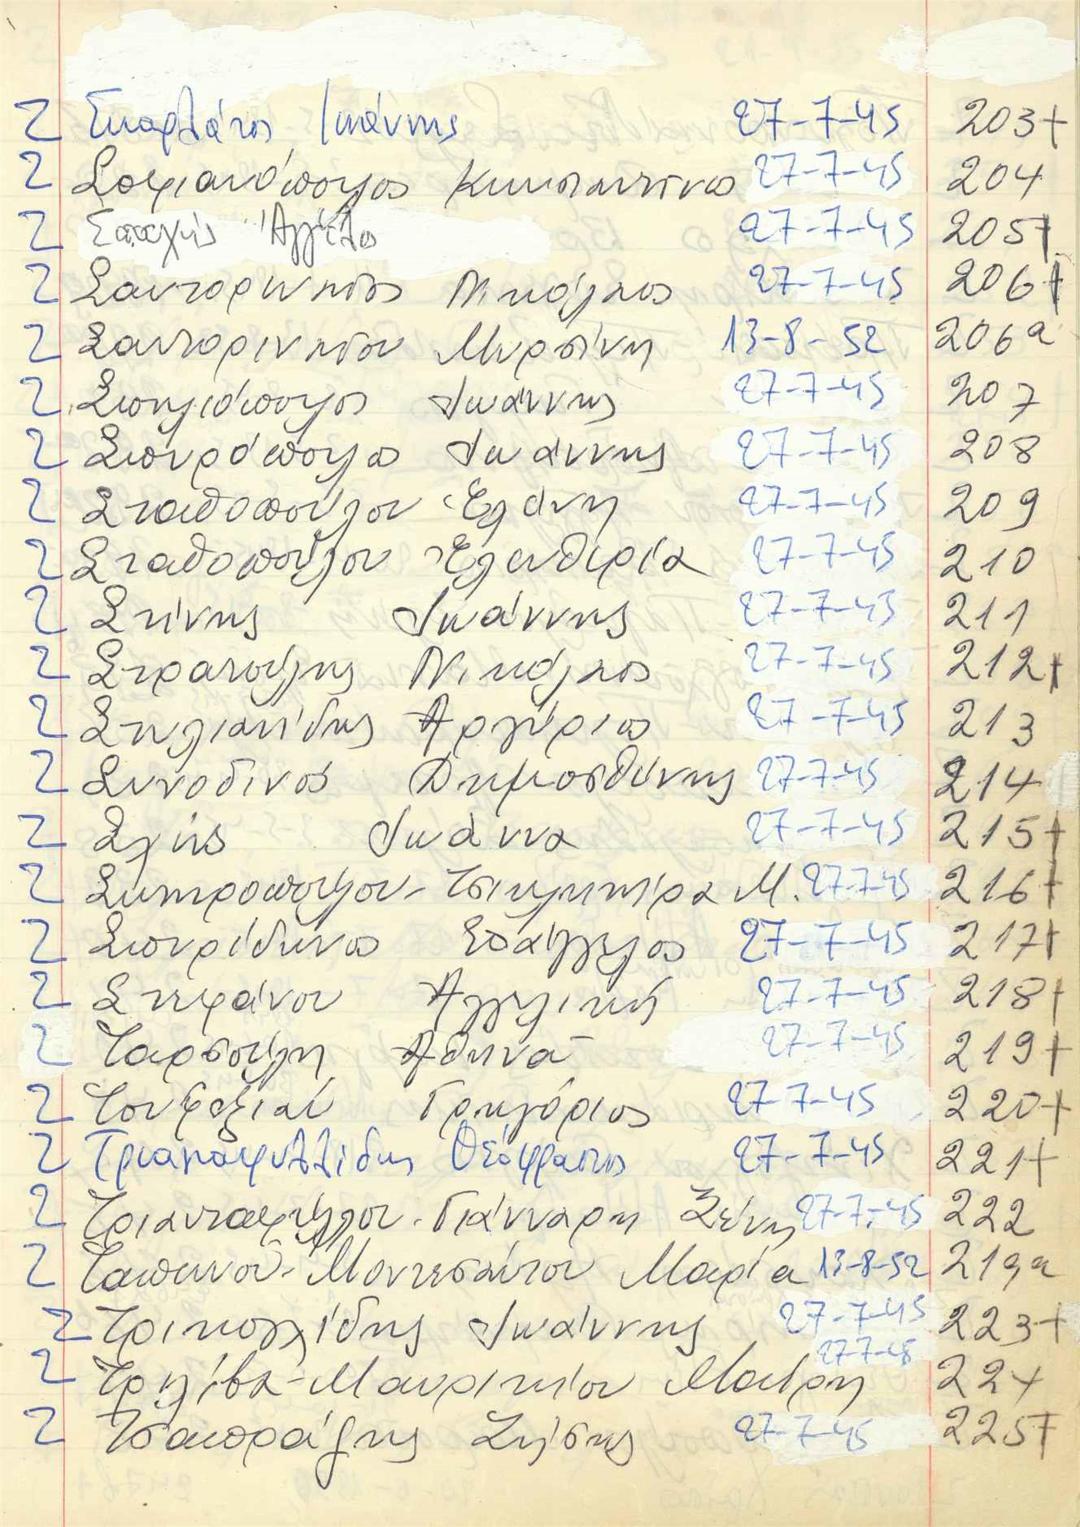 2 Σκαρλάτος Ιωάννης 27-7-45 203+
2 Σοφιανόπουλος Κωνσταντίνος 27-7-45 204
2 Άγγελο 27-7-45 205+
2 Σαντορινηός Νικόλαος 27-7-45 206+
2 Σαντορινηού Μυρσίνη 13-8-52 206α
2 Σπηλιόπουλος Ιωάννης 27-7-45 207
2 Σπυρόπουλος Ιωάννης 27-7-45 208
2 Σταθοπούλου Ελένη 27-7-45 209
2 Σταθοπούλου Ελευθερία 27-7-45 210
2 Στίνης Ιωάννης 27-7-45 211
2 Στρατούλης Νικόλαος 27-7-45 212+
2 Στυλιανίδης Αργύριος 27-7-45 213
2 Συνοδινός Δημοσθένης 27-7-45 214
2 Σλής Ιωάννα 27-7-45 215+
2 Σωτηροπούλου-Τσικλητήρα Μ. 27-7-45 216+
2 Σπυρίδωνος Ευάγγελος 27-7-45 217+
2 Στεφάνου Αγγελική 27-7-45 218+
2 Ταρσούλη Αθηνά 27-7-45 219+
2 Τουφεξιαί Γρηγόριος 27-7-45 220+
2 Τριανταφυλλίδης Θεόφραστος 27-7-45 221+
2 Τριανταφύλλου-Γιάνναρη Ξένη 27-7-45 222
2 Ταπεινού-Μοντεσάντου Μαρία 13-8-52 219α
2 Τρικογλίδης Ιωάννης 27-7-45 223+
2 Μαυρικίου Μαίρη 27-7-45 224
2 Τσαπράζης Ζήσης 27-7-45 225+